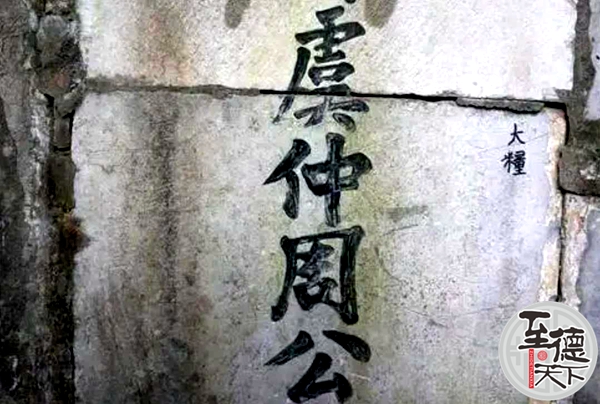 虞仲周公
大糧
至德天下